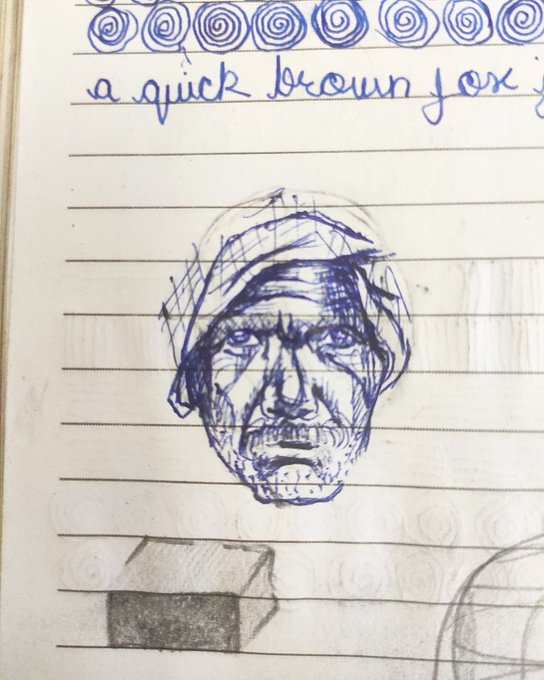 a quick brown fox